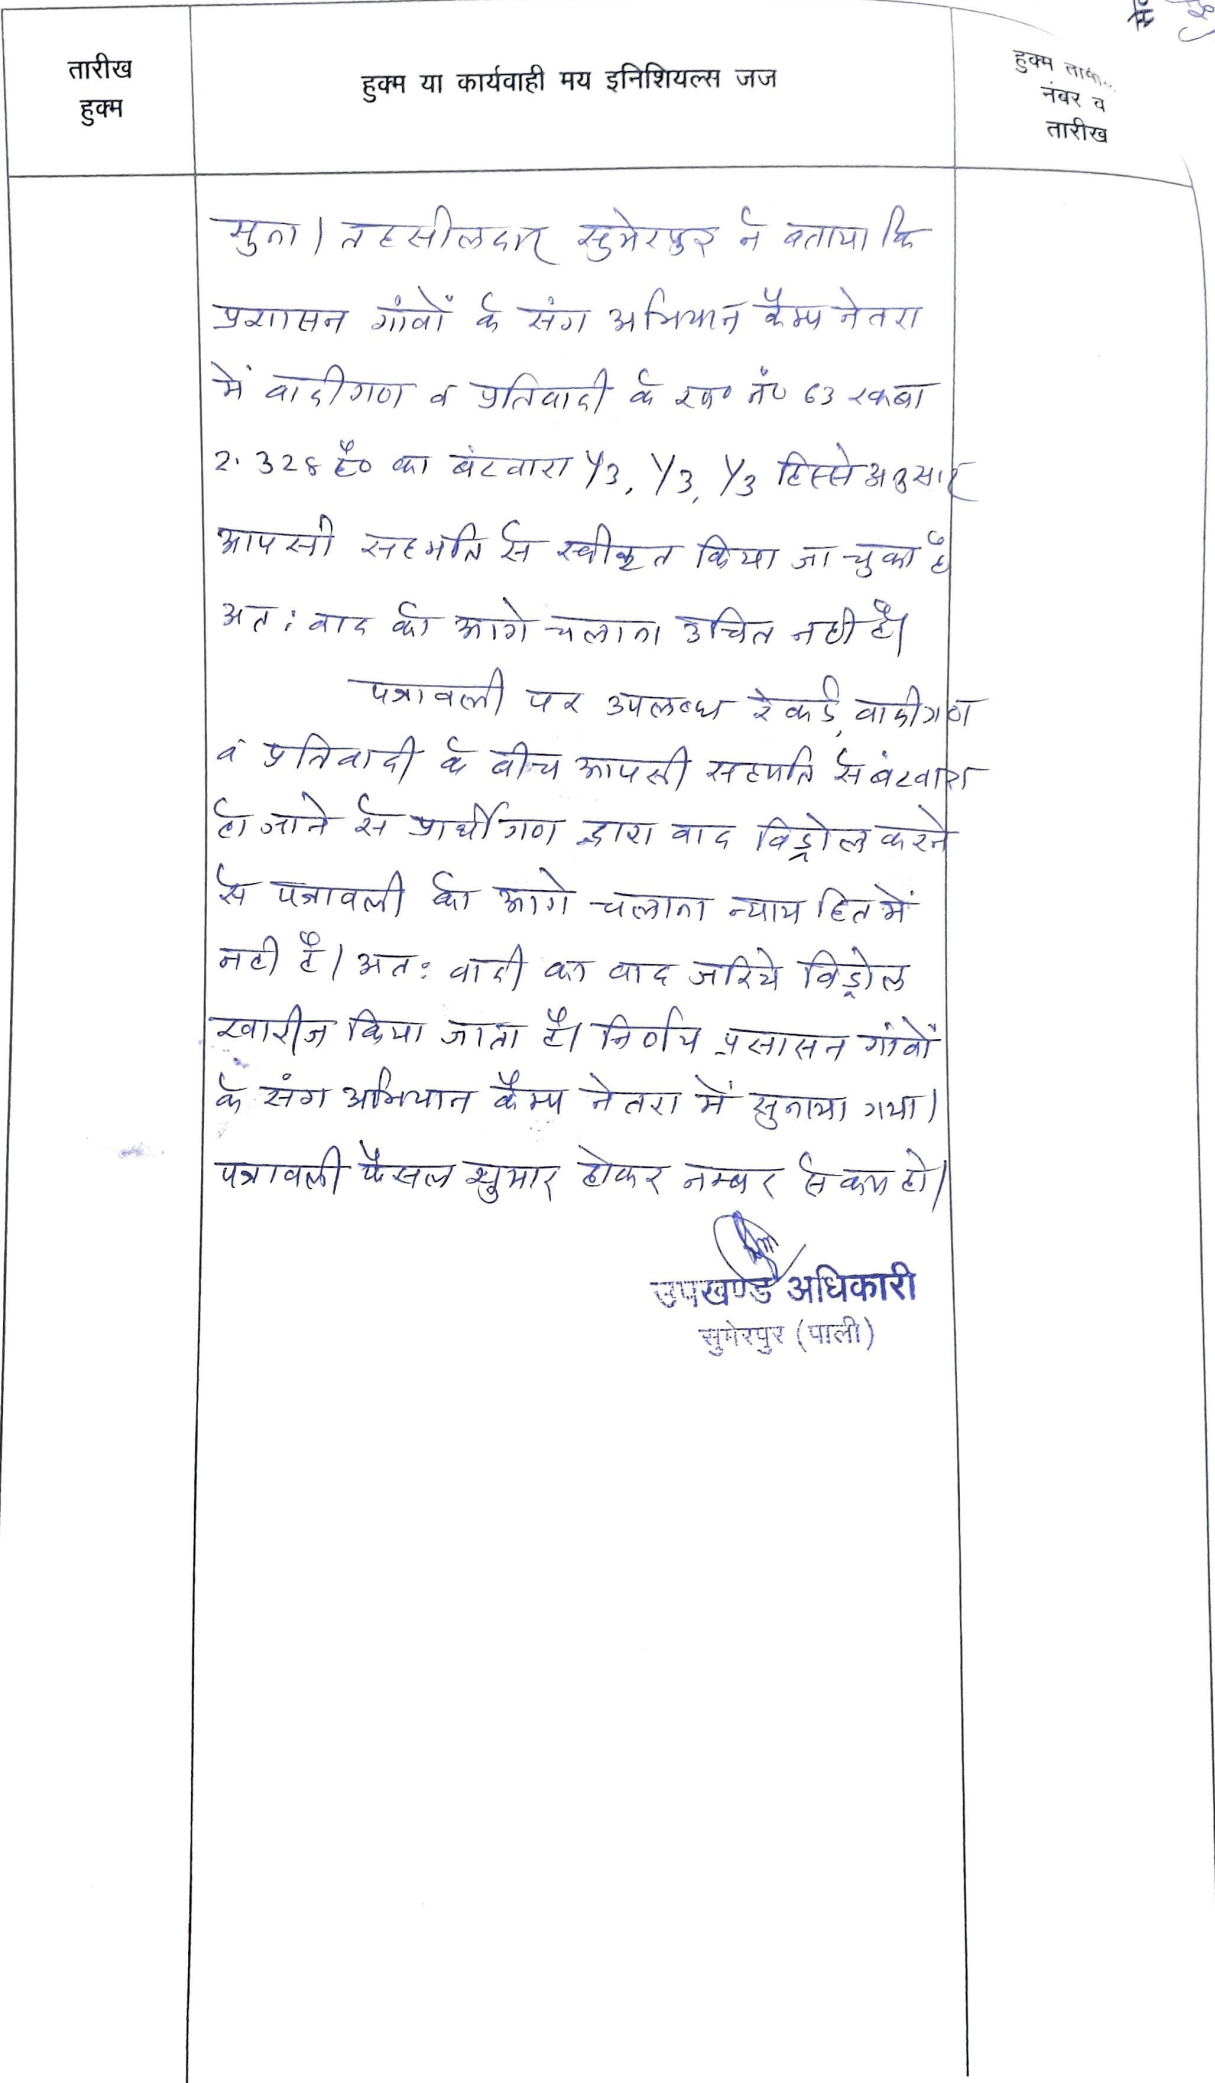 तारीख
हुक्म
हुक्म या कार्यवाही मय इनिशियल्स जज
हुक्म
नंबर व
तारीख
सुना। तहसीलदार सुमेरपुर ने बताया कि
प्रशासन गांवों के संग अभियान कैम्प नेतरा
में वादीगण व प्रतिवादी के ख० नं० 63 रकबा
2.328 है० का बंटवारा 1/3, 1/3, 1/3 हिस्से अनुसार
आपसी सहमति से स्वीकृत किया जा चुका है
अत: वाद को आगे चलाना उचित नही है।
पत्रावली पर उपलब्ध रेकर्ड, वादीगण
व प्रतिवादी के बीच आपसी सहमति से बंटवारा
हो जाने से प्रार्थीगण द्वारा वाद विड्रोल करने
से पत्रावली को आगे चलाना न्याय हित में
नही है। अत: वादी का वाद जरिये विड्रोल
खारीज किया जाता है। निर्णय प्रसासन गांवों
के संग अभियान कैम्प नेतरा में सुनाया गया।
पत्रावली फैसल शुमार होकर नम्बर से कम हो।
उपखण्ड अधिकारी
सुमेरपुर (पाली)